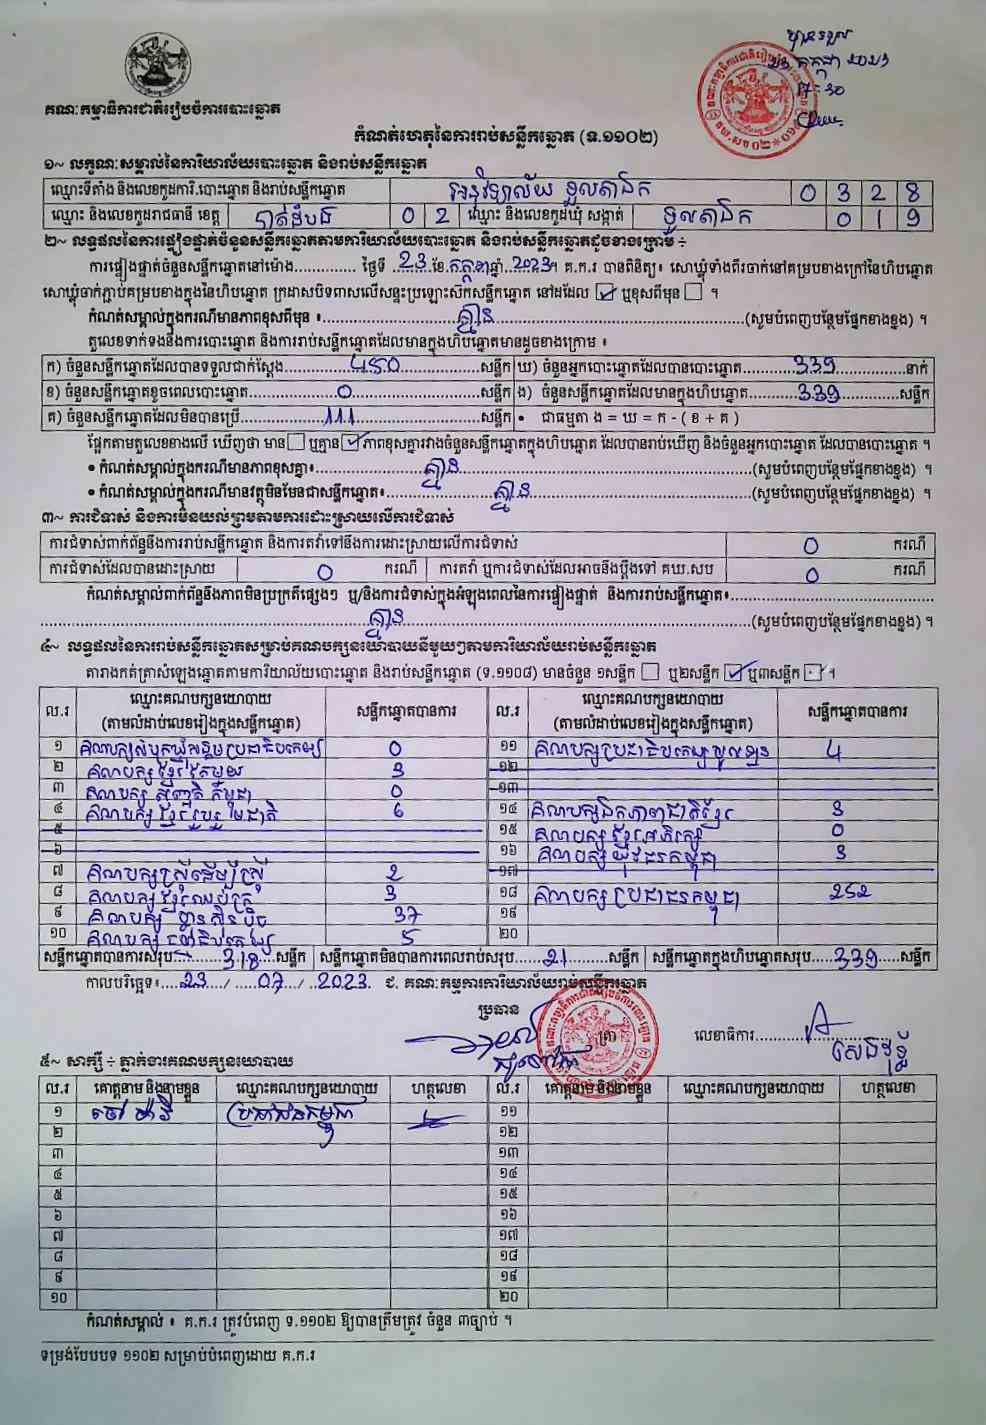 បានទទួល
23 កក្កដា 2023
17-30
គណៈកម្មាធិការជាតិរៀបចំការបោះឆ្នោត
កំណត់ហេតុនៃការរាប់សន្លឹកឆ្នោត (ទ.១១០២)
១~ លក្ខណៈសម្គាល់នៃការិយាល័យបោះឆ្នោត និងរាប់សន្លឹកឆ្នោត
ឈ្មោះទីតាំង និងលេខកូដការិ.បោះឆ្នោត និងរាប់សន្លឹកឆ្នោត អនុវិទ្យាល័យ ទួលតាឯក 0 3 2 8
ឈ្មោះ និងលេខកូដរាជធានី ខេត្ត បាត់ដំបង 0 2 ឈ្មោះ និងលេខកូដឃុំ សង្កាត់ ទួលតាឯក 0 1 9
២~ លទ្ធផលនៃការផ្ទៀងផ្ទាត់ចំនួនសន្លឹកឆ្នោតតាមការិយាល័យបោះឆ្នោត និងរាប់សន្លឹកឆ្នោតដូចខាងក្រោម ÷
ការផ្ទៀងផ្ទាត់ចំនួនសន្លឹកឆ្នោតនៅម៉ោង.............. ថ្ងៃទី 23 ខែ កក្កដា ឆ្នាំ 2023 ។ គ.ក.រ បានពិនិត្យ៖ សោឃ្លុំទាំងពីរចាក់នៅគម្របខាងក្រៅនៃហិបឆ្នោត
សោឃ្លុំចាក់ភ្ជាប់គម្របខាងក្នុងនៃហិបឆ្នោត ក្រដាសបិទពាសលើសន្ទះប្រឡោះស៊កសន្លឹកឆ្នោត នៅដដែល ☑ ឬខុសពីមុន ☐ ។
កំណត់សម្គាល់ក្នុងករណីមានភាពខុសពីមុន ៖ គ្មាន (សូមបំពេញបន្ថែមផ្នែកខាងខ្នង) ។
តួលេខទាក់ទងនឹងការបោះឆ្នោត និងការរាប់សន្លឹកឆ្នោតដែលមានក្នុងហិបឆ្នោតមានដូចខាងក្រោម ៖
ក) ចំនួនសន្លឹកឆ្នោតដែលបានទទួលជាក់ស្តែង 450 សន្លឹក ឃ) ចំនួនអ្នកបោះឆ្នោតដែលបានបោះឆ្នោត 339 នាក់
ខ) ចំនួនសន្លឹកឆ្នោតខូចពេលបោះឆ្នោត 0 សន្លឹក ង) ចំនួនសន្លឹកឆ្នោតដែលមានក្នុងហិបឆ្នោត 339 សន្លឹក
គ) ចំនួនសន្លឹកឆ្នោតដែលមិនបានប្រើ 111 សន្លឹក • ជាធម្មតា ង = ឃ = ក - ( ខ + គ )
ផ្អែកតាមតួលេខខាងលើ ឃើញថា មាន ☐ ឬគ្មាន ☑ ភាពខុសគ្នារវាងចំនួនសន្លឹកឆ្នោតក្នុងហិបឆ្នោត ដែលបានរាប់ឃើញ និងចំនួនអ្នកបោះឆ្នោត ដែលបានបោះឆ្នោត ។
• កំណត់សម្គាល់ក្នុងករណីមានភាពខុសគ្នា៖ គ្មាន (សូមបំពេញបន្ថែមផ្នែកខាងខ្នង) ។
• កំណត់សម្គាល់ក្នុងករណីមានវត្ថុមិនមែនជាសន្លឹកឆ្នោត៖ គ្មាន (សូមបំពេញបន្ថែមផ្នែកខាងខ្នង) ។
៣~ ការជំទាស់ និងការមិនយល់ព្រមតាមការដោះស្រាយលើការជំទាស់
ការជំទាស់ពាក់ព័ន្ធនឹងការរាប់សន្លឹកឆ្នោត និងការតវ៉ាទៅនឹងការដោះស្រាយលើការជំទាស់ 0 ករណី
ការជំទាស់ដែលបានដោះស្រាយ 0 ករណី ការតវ៉ា ឬការជំទាស់ដែលអាចនឹងប្តឹងទៅ គឃ.សប 0 ករណី
កំណត់សម្គាល់ពាក់ព័ន្ធនឹងភាពមិនប្រក្រតីផ្សេងៗ ឬ/និងការជំទាស់ក្នុងអំឡុងពេលនៃការផ្ទៀងផ្ទាត់ និងការរាប់សន្លឹកឆ្នោត៖
គ្មាន (សូមបំពេញបន្ថែមផ្នែកខាងខ្នង) ។
៤~ លទ្ធផលនៃការរាប់សន្លឹកឆ្នោតសម្រាប់គណបក្សនយោបាយនីមួយៗតាមការិយាល័យរាប់សន្លឹកឆ្នោត
តារាងកត់ត្រាសំឡេងឆ្នោតតាមការិយាល័យបោះឆ្នោត និងរាប់សន្លឹកឆ្នោត (ទ.១១០៨) មានចំនួន ១សន្លឹក ☐ ឬ២សន្លឹក ☑ ឬ៣សន្លឹក ☐ ។
ល.រ ឈ្មោះគណបក្សនយោបាយ (តាមលំដាប់លេខរៀងក្នុងសន្លឹកឆ្នោត) សន្លឹកឆ្នោតបានការ ល.រ ឈ្មោះគណបក្សនយោបាយ (តាមលំដាប់លេខរៀងក្នុងសន្លឹកឆ្នោត) សន្លឹកឆ្នោតបានការ
១ គណបក្សសំបុកឃ្មុំសង្គមប្រជាធិបតេយ្យ 0 ១១ គណបក្សប្រជាធិបតេយ្យមូលដ្ឋាន 4
២ គណបក្ស ខ្មែរតែមួយ 3 ១២
៣ គណបក្ស សញ្ជាតិ កម្ពុជា 0 ១៣
៤ គណបក្ស ខ្មែររួបរួមជាតិ 6 ១៤ គណបក្សឯកភាពជាតិខ្មែរ 3
៥ ១៥ គណបក្ស ខ្មែរអភិរក្ស 0
៦ ១៦ គណបក្ស យុវជនកម្ពុជា 3
៧ គណបក្សស្ត្រីដើម្បីស្ត្រី 2 ១៧
៨ គណបក្ស ខ្មែរឈប់ក្រ 3 ១៨ គណបក្ស ប្រជាជនកម្ពុជា 252
៩ គណបក្ស ហ្វ៊ុនស៊ិនប៉ិច 37 ១៩
១០ គណបក្ស ធម្មាធិបតេយ្យ 5 ២០
សន្លឹកឆ្នោតបានការសរុប 318 សន្លឹក សន្លឹកឆ្នោតមិនបានការពេលរាប់សរុប 21 សន្លឹក សន្លឹកឆ្នោតក្នុងហិបឆ្នោតសរុប 339 សន្លឹក
កាលបរិច្ឆេទ៖ 23 / 07 / 2023. ជ. គណៈកម្មការការិយាល័យរាប់សន្លឹកឆ្នោត
ប្រធាន
ត្រា លេខាធិការ
សេងវុទ្ធី
៥~ សាក្សី ÷ ភ្នាក់ងារគណបក្សនយោបាយ
ល.រ គោត្តនាម និងនាមខ្លួន ឈ្មោះគណបក្សនយោបាយ ហត្ថលេខា ល.រ គោត្តនាម និងនាមខ្លួន ឈ្មោះគណបក្សនយោបាយ ហត្ថលេខា
១ ប្រជាជនកម្ពុជា ១១
២ ១២
៣ ១៣
៤ ១៤
៥ ១៥
៦ ១៦
៧ ១៧
៨ ១៨
៩ ១៩
១០ ២០
កំណត់សម្គាល់ ៖ គ.ក.រ ត្រូវបំពេញ ទ.១១០២ ឱ្យបានត្រឹមត្រូវ ចំនួន ៣ច្បាប់ ។
ទម្រង់បែបបទ ១១០២ សម្រាប់បំពេញដោយ គ.ក.រ